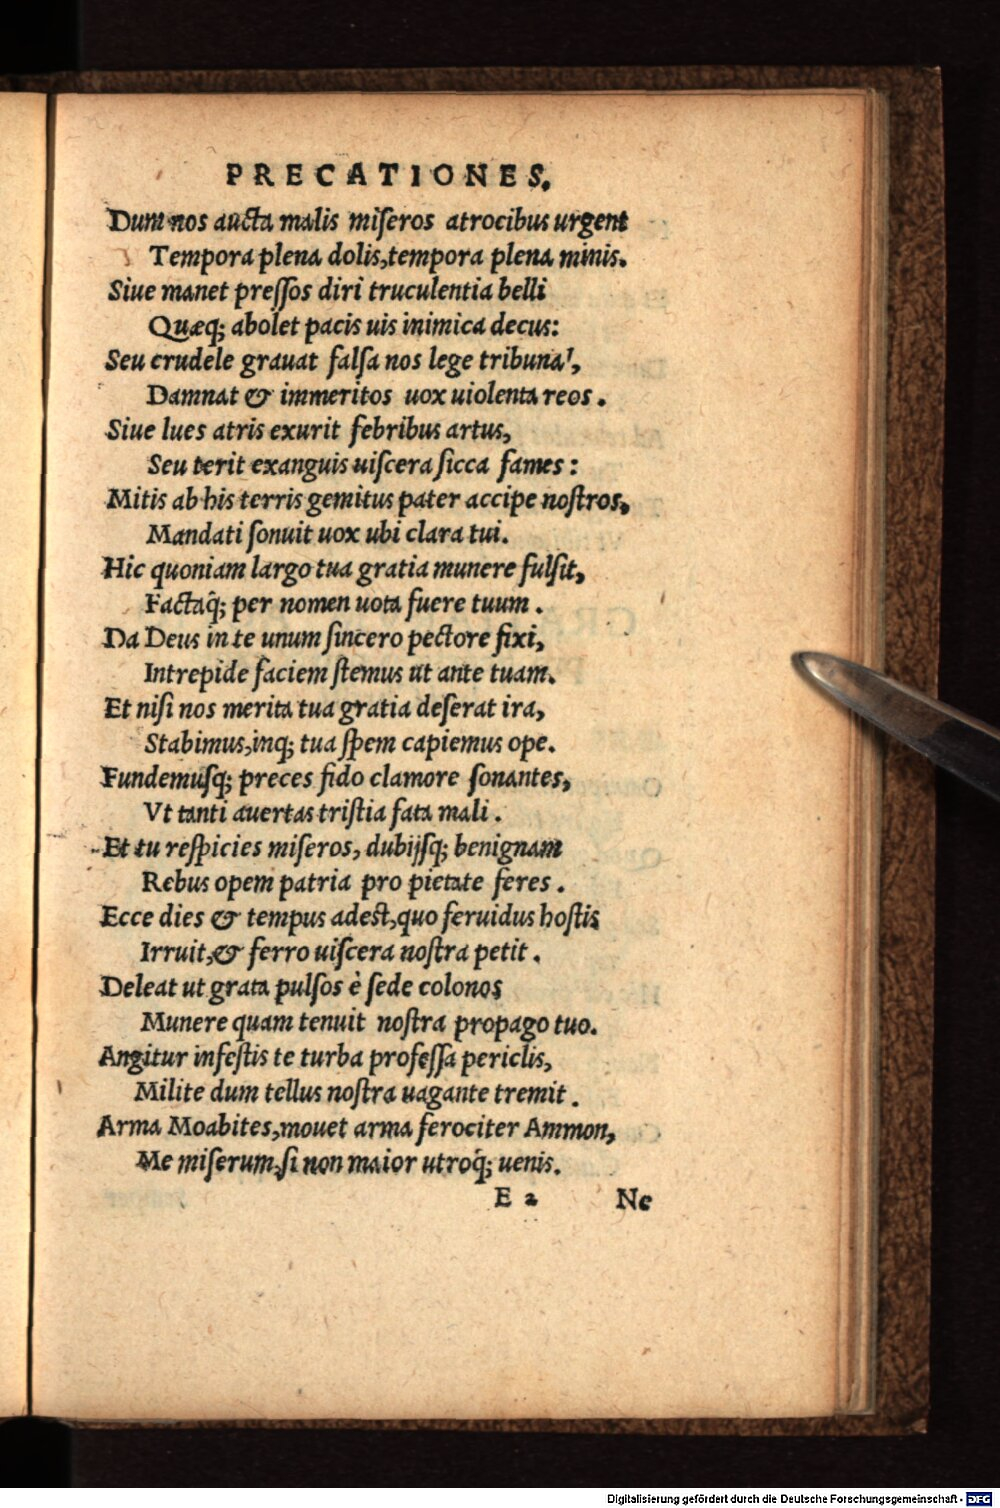 PRECATIONES.
Dum nos aucta malis miſeros atrocibus urgent
Tempora plena dolis, tempora plena minis.
Siue manet preſſos diri truculentia belli
Quæq; abolet pacis uis inimica decus:
Seu crudele grauat falſa nos lege tribunal,
Damnat & immeritos uox uiolenta reos.
Siue lues atris exurit febribus artus,
Seu terit exanguis uiſcera ſicca fames:
Mitis ab his terris gemitus pater accipe noſtros,
Mandati ſonuit uox ubi clara tui.
Hic quoniam largo tua gratia munere fulſit,
Factaq́; per nomen uota fuere tuum.
Da Deus in te unum ſincero pectore fixi,
Intrepide faciem ſtemus ut ante tuam.
Et niſi nos merita tua gratia deſerat ira,
Stabimus, inq; tua ſpem capiemus ope.
Fundemuſq; preces fido clamore ſonantes,
Vt tanti auertas triſtia fata mali.
Et tu reſpicies miſeros, dubijſq; benignam
Rebus opem patria pro pietate feres.
Ecce dies & tempus adeſt, quo feruidus hoſtis
Irruit, & ferro uiſcera noſtra petit.
Deleat ut grata pulſos è ſede colonos
Munere quam tenuit noſtra propago tuo.
Angitur infeſtis te turba profeſſa periclis,
Milite dum tellus noſtra uagante tremit.
Arma Moabites, mouet arma ferociter Ammon,
Me miſerum, ſi non maior utroq́; uenis.
E 2 Ne
Digitalisierung gefördert durch die Deutsche Forschungsgemeinschaft - DFG